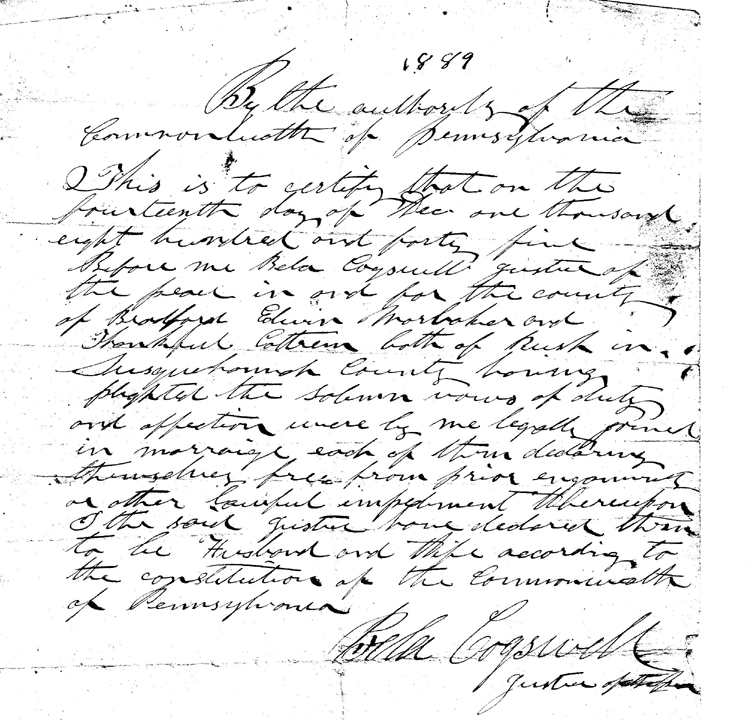 1889
By the authority of the
Commonwealth of Pennsylvania
This is to certify that on the
fourteenth day of Dec one thousand
eight hundred and forty five
Before me Bela Cogswell Justice of
the peace in and for the county
of Bradford Edwin and
Thankful Cottrem both of Rush in
Susquehannah County having
plighted the solemn vows of duty
and affection were by me legally joined
in marraige each of them declaring
themselves free from prior engaments
or other lawful impediment thereupon
I the said Justice have declared them
to be Husband and Wife according to
the constitution of the Commonwealth
of Pennsylvania
Bela Cogswell
Justice of the